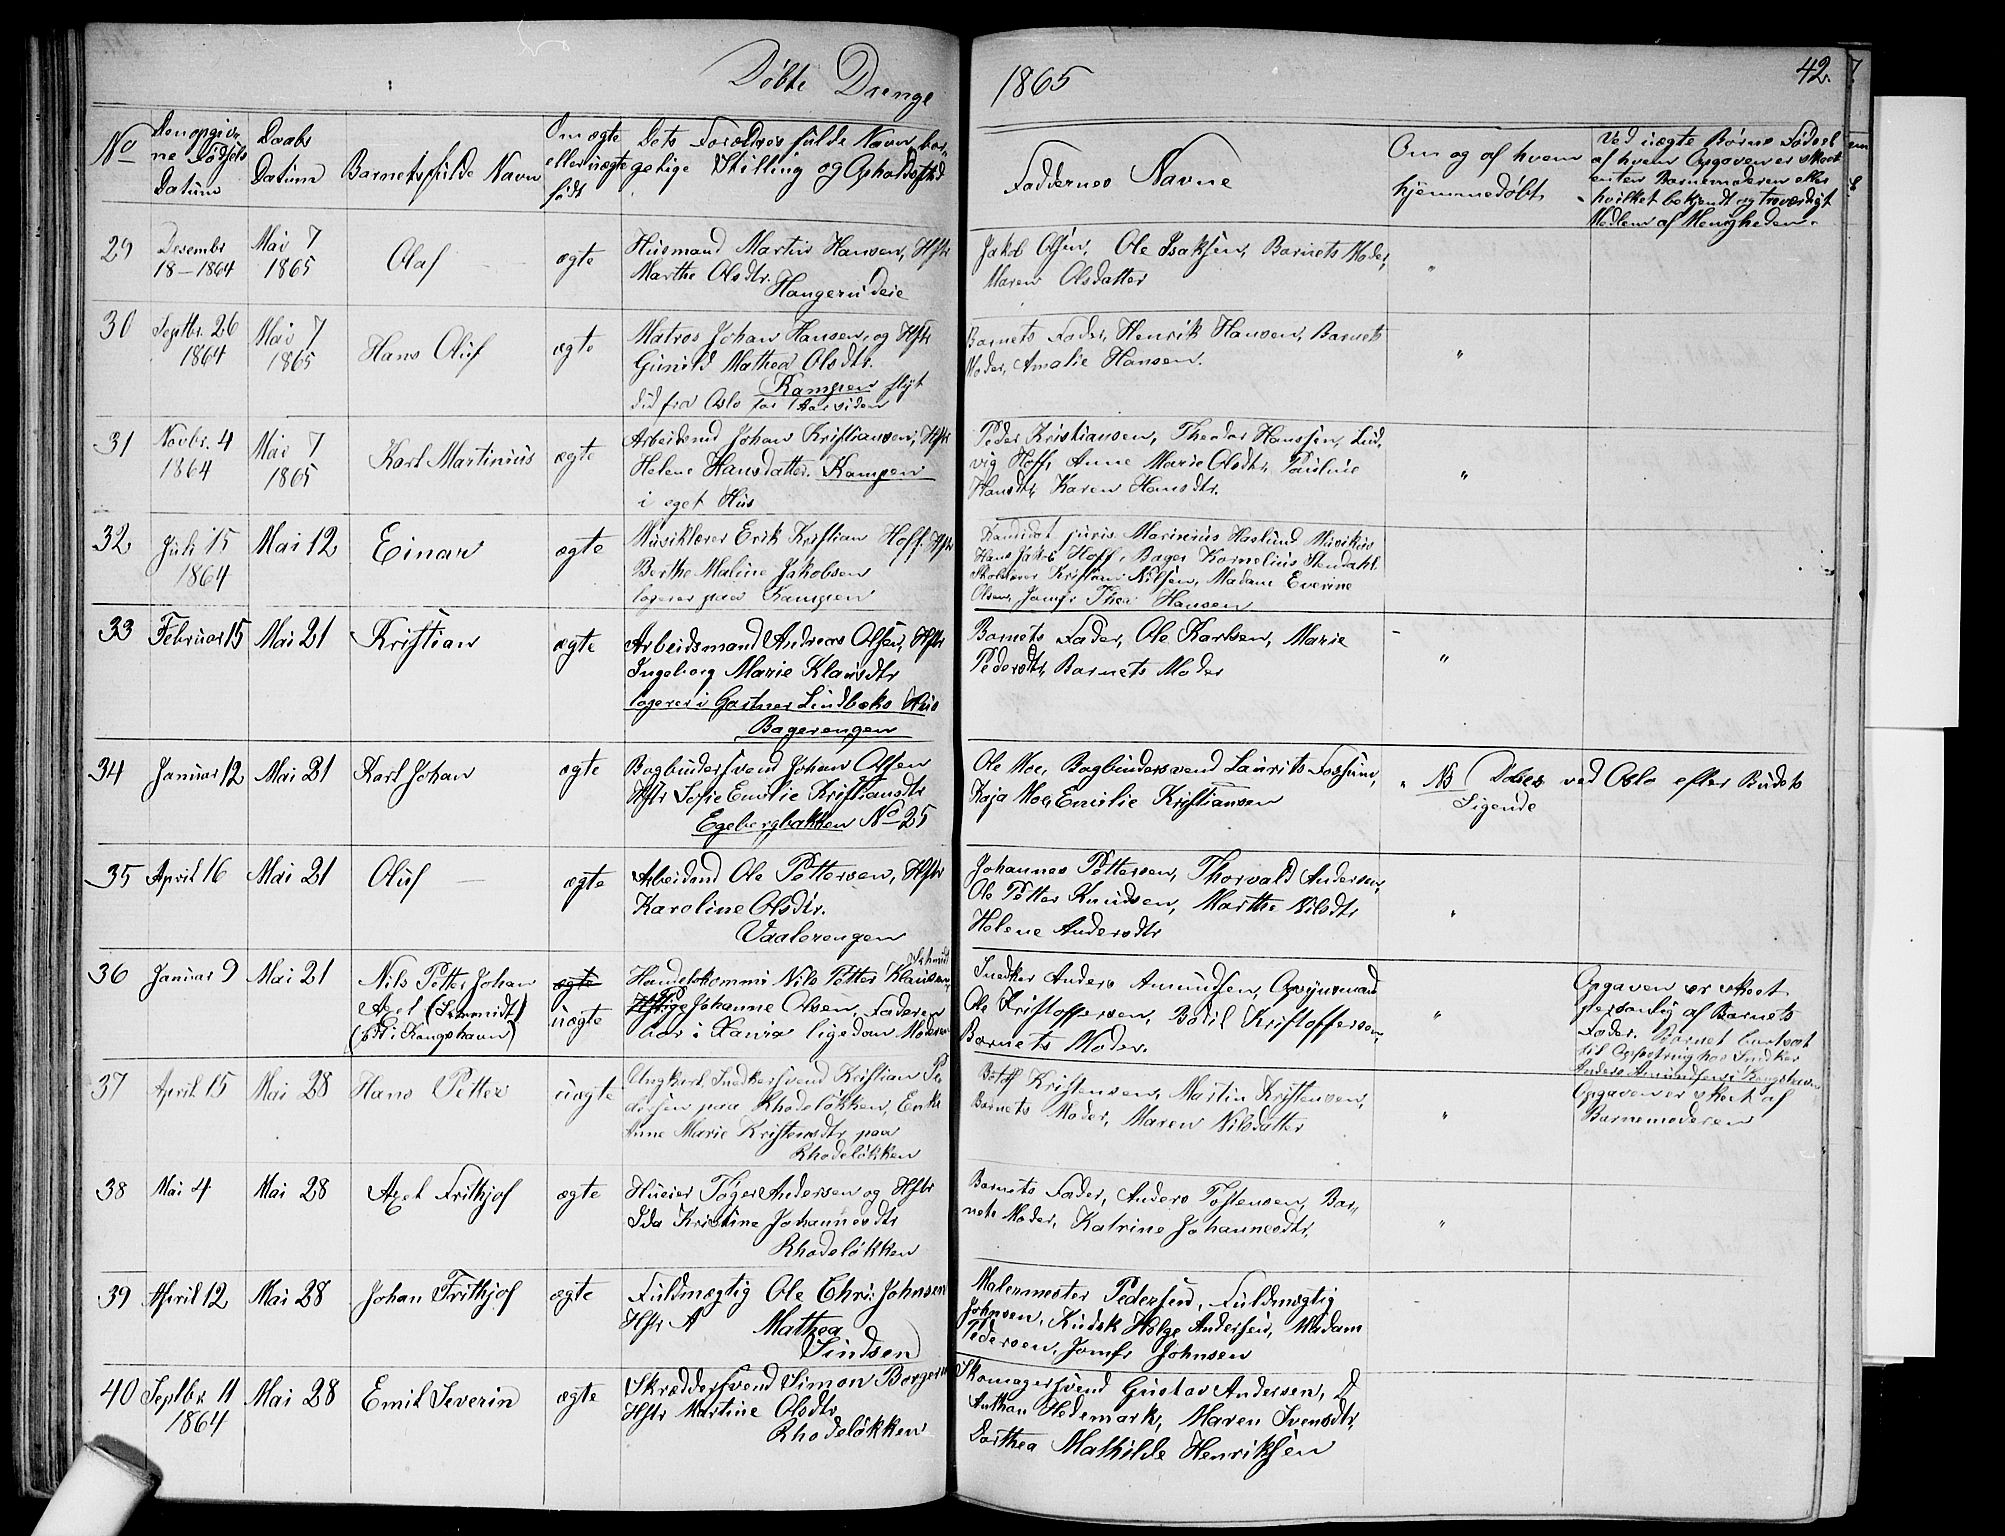 Døbte Drenge
1865
42.
No
Den opgiv-
ne Fødsels
Datum
Daabs
Datum
Barnets fulde Navn
Om ægte
eller uægte
født
Dets Forældres fulde Navn, bor-
gerlige Stilling og Opholdssted
Faddernes Navne
Om og af hvem
hjemmedøbt
Ved uægte Børns Fødsel
af hvem Opgaven er skeet
enten Barnemoderen eller
hvilket bekjendt og troværdigt
Medlem af Menigheden.
29
Desembr
18-1864
Mai 7
1865
Olaf
ægte
Husmand Martin Hansen, Hstr
Marthe Olsdtr.
Haugerudeie
Jakob Olsen, Ole Isaksen, Barnets Moder,
Maren Olsdatter
"
30
Septbr. 26
1864
Mai 7
1865
Hans Oluf
ægte
Matros Johan Hansen, og Hstr
Gunild Mathea Olsdtr.
Kampen flyt
did fra Oslo for 1 Aar siden
Barnets Fader, Henrik Hansen, Barnets
Moder, Amalie Hansen.
"
31
Novbr. 4
1864
Mai 7
1865
Karl Martinius
ægte
Arbeidsmd Johan Kristiansen, Hstr
Helene Hansdatter. Kampen
i eget Hus
Peder Kristiansen, Theodor Hanssen, Lud-
vig Hoff, Anne Marie Olsdtr, Pauline
Hansdtr, Karen Hansdtr.
"
32
Juli 15
1864
Mai 12
Einar
ægte
Musiklærer Erik Kristian Hoff. Hstr
Berthe Maline Jakobsen
logerer paa Kampen
Kandidat juris Marinius Haslund Musikus
Hans Jakob Hoff, Bager Kornelius Stendahl
Skolelærer Kristian Nilsen, Madam Everine
Olsen, Jomfr Thea Hansen
33
Februar 15
Mai 21
Kristian
ægte
Arbeidsmand Andreas Olsen, Hstr
Ingeborg Marie Klausdtr
logerer i Gartner Lindbæks Hus
Bagerengen
Barnets Fader, Ole Karlsen, Marie
Pedersdtr, Barnets Moder
"
34
Januar 12
Mai 21
Karl Johan
ægte
Bogbindersvend Johan Olsen
Hstr Sofie Emilie Kristiansdtr
Egebergbakken No 25
Ole Moe, Bogbindersvend Laurits Fossum,
Kaja Moe, Emilie Kristiansen
" NB Døbes ved Oslo efter Budets
Sigende
35
April 16
Mai 21
Oluf
ægte
Arbeidsmd Ole Pettersen, Hstr
Karoline Olsdtr.
Vaalerengen
Johannes Pettersen, Thorvald Andersen,
Ole Petter Knudsen, Marthe Nilsdtr
Helene Andersdtr
"
36
Januar 9
Mai 21
Nils Petter Johan
Axel (Schmidt)
(født i Kongshavn)
ægte
uægte
Schmidt
Handelskommis Nils Petter Klausen,
Pige Johanne Olsen, Faderen
bor i Xania ligedan Moderen
Snedker Anders Amundsen, Opsynsmand
Ole Kristoffersen, Bodil Kristoffersen,
Barnets Moder.
"
Opgaven er skeet
personlig af Barnets
Fader. Barnet bortsat
til Opfostring hos Snedker
Anders Amundsen i Kongshavn
37
April 15
Mai 28
Hans Petter
uægte
Ungkarl Snedkersvend Kristian Pe-
dersen paa Rhodeløkken, Enke
Anne Marie Kristensdtr paa
Rhodeløkken
Botolf Kristensen, Martin Kristensen,
Barnets Moder, Maren Nilsdatter
"
Opgaven er skeet af
Barnemoderen
38
Mai 4
Mai 28
Axel Frithjof
ægte
Huseier Tøger Andersen og Hstr
Ida Kristine Johannesdtr
Rhodeløkken
Barnets Fader, Anders Tostensen, Bar-
nets Moder, Katrine Johannesdtr,
"
39
April 12
Mai 28
Johan Frithjof
ægte
Fuldmægtig Ole Chri: Johnsen
Hstr A Mathea
Lindsen
Malermester Pedersen, Fuldmægtig
Johnsen, Kudsk Helge Andersen, Madam
Pedersen, Jomfr Johnsen
40
Septbr. 11
1864
Mai 28
Emil Severin
ægte
Skræddersvend Simon Borgersen
Hstr Martine Olsdtr
Rhodeløkken
Skomagersvend Gustav Andersen, D
Anthon Hedemark, Maren Svensdtr,
Dorthea Mathilde Henriksen